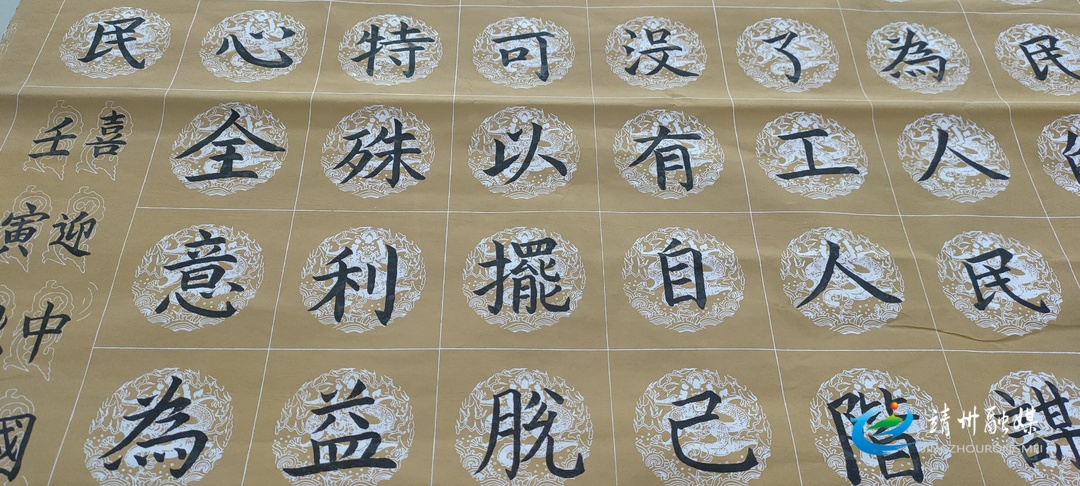 民
為人民謀
了工人階
没有自己
可以擺脫
特殊利益
心全意為
民
喜迎中國
壬寅
靖州融媒